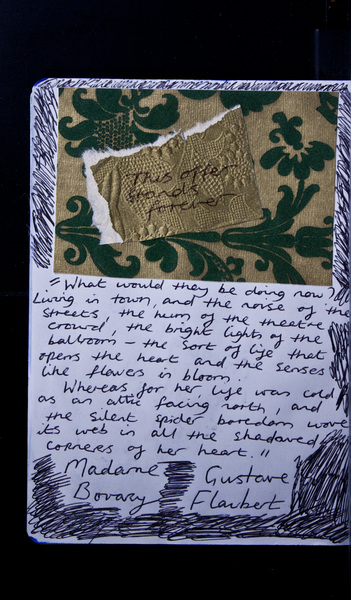 This offer
stands
forever
"What would they be doing now?
Living in town, and the noise of the
streets, the hum of the theatre
crowd, the bright lights of the
ballroom – the sort of life that
opens the heart and the senses
like flowers in bloom.
Whereas for her, life was cold
as an attic facing north, and
the silent spider boredom wove
its web in all the shadowed
corners of her heart."
Madame Gustave
Bovary Flaubert